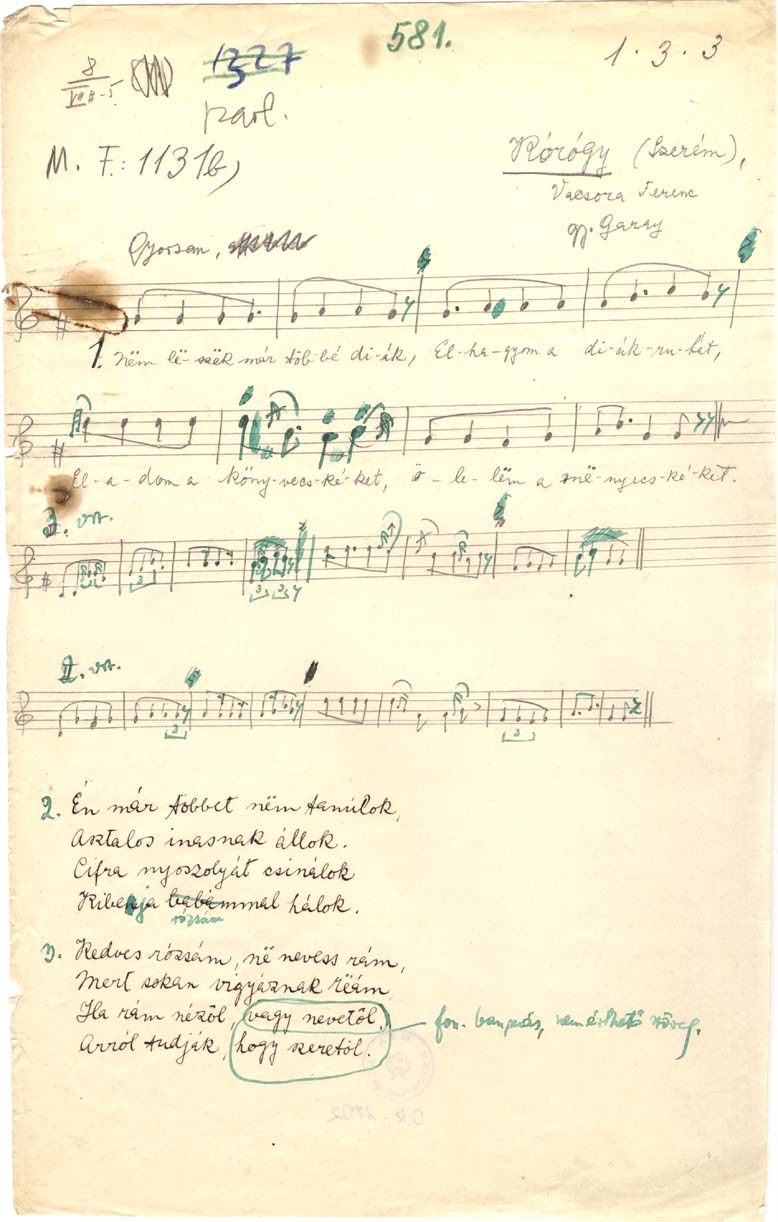 581.
1327
1 . 3 . 3
8
VII #-5
parl.
M. F.: 1131b)
Kórógy (Szerém),
Vacsora Ferenc
gy. Garay
Gyorsan,
1. Nëm lë-szëk már töb-bé di-ák, El-ha-gyom a di-ák-ru-hát,
El-a-dom a köny-vecs-ké-ket, ö-le-lëm a më-nyecs-ké-ket.
vs.
vs.
2. Én már többet nëm tanúlok,
Asztalos inasnak állok.
Cifra nyoszolyát csinálok
mmal hálok.
rózsám
3. Kedves rózsám, në nevess rám,
Mert sokan vigyáznak rëám
Ha rám nézöl, vagy nevetöl,
Arról tudják, hogy szeretöl.
nem érthető szöveg.